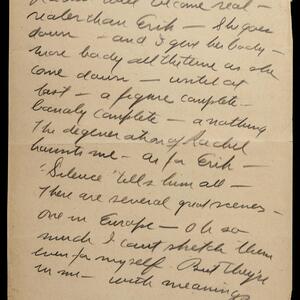 will become real –
realer than Erik – She goes
down – and I give her body –
more body all the time as she
come down – until at
last – a figure complete –
banaly complete – a nothing
The degeneration of Rachel
haunts me – as for Erik –
"Silence" tells him all –
There are several great scenes –
one in Europe – Oh so
much I can't stretch them
even for myself. But they're
in me – with meanings